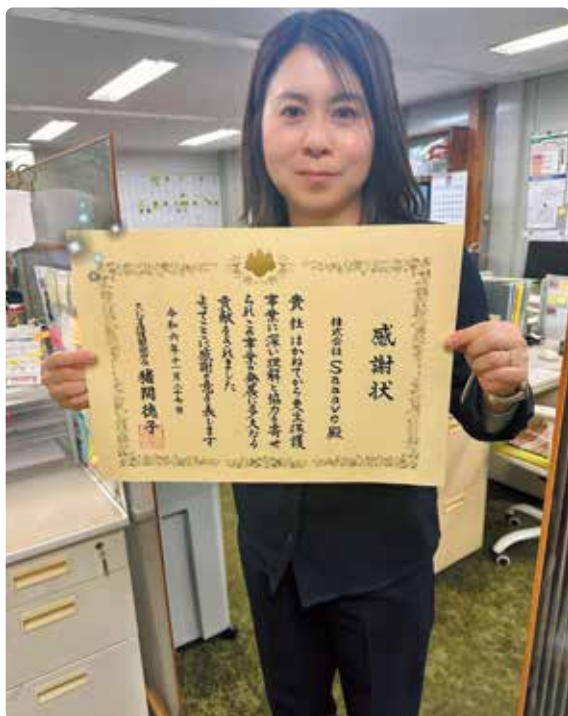 感謝状
株式会社 Saaave殿
貴社はかねてから更生保護
事業に深い理解と協力を寄せ
られこの事業の発展に多大なる
貢献をされました
よってここに感謝の意を表します
令和六年十一月二十七日
猪間徳子